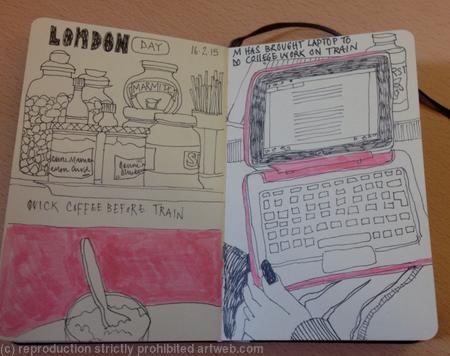 LONDON DAY 16.2.15
MARMITE
QUICK COFFEE BEFORE TRAIN
M HAS BROUGHT LAPTOP TO
DO COLLEGE WORK ON TRAIN
(c) reproduction strictly prohibited artweb.com